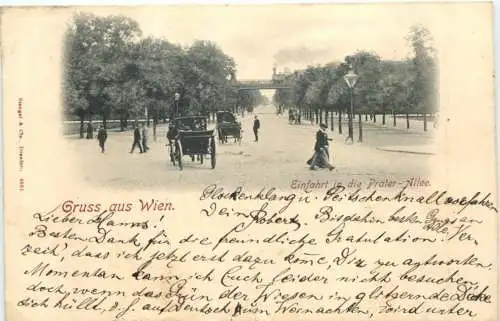 Stengel & Co., Dresden
Einfahrt in die Prater-Allee.
Gruss aus Wien.
Glockenklang u. Peitschenknall
Lieber Hanns! Dein Robert. Bis dahin besten Gruss an Alle. Ver-
Besten Dank für die freundliche Gratulation.
zeih', dass ich jetzt erst dazu kome, Dir zu antworten.
Momentan kann ich Euch leider nicht besuchen,
doch, wenn das Grün der Wiesen in glitzernde Decke
sich hüllt, d. h. auf Deutsch zum Weihnachten, wird unter